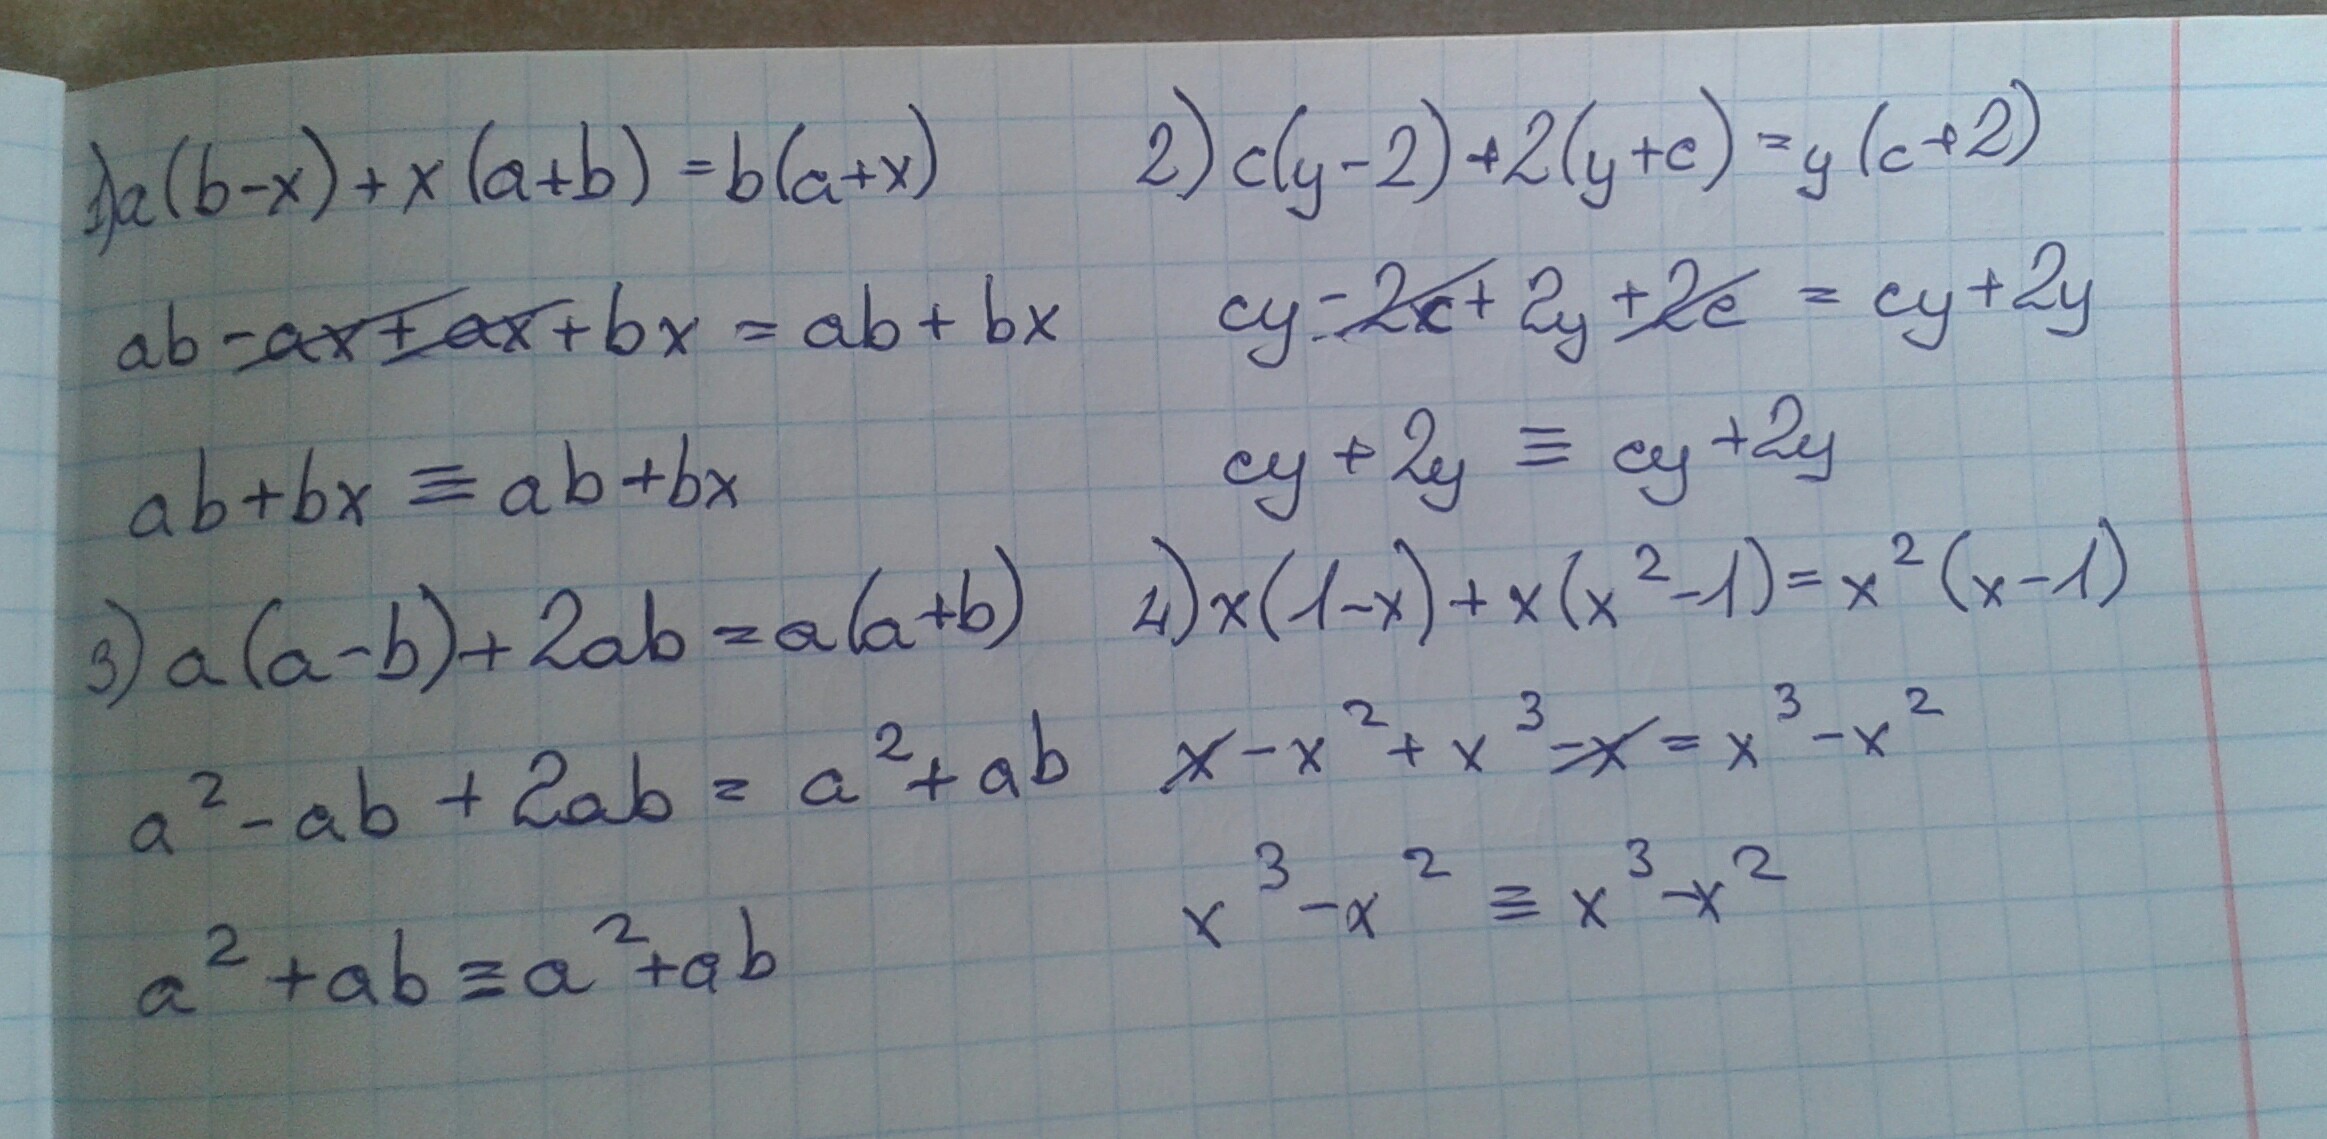 1) a(b-x)+x(a+b)=b(a+x)
ab-ax+ax+bx=ab+bx
ab+bx≡ab+bx
2) c(y-2)+2(y+c)=y(c+2)
cy-2c+2y+2c=cy+2y
cy+2y≡cy+2y
3) a(a-b)+2ab=a(a+b)
a²-ab+2ab=a²+ab
a²+ab≡a²+ab
4) x(1-x)+x(x²-1)=x²(x-1)
x-x²+x³-x=x³-x²
x³-x²≡x³-x²